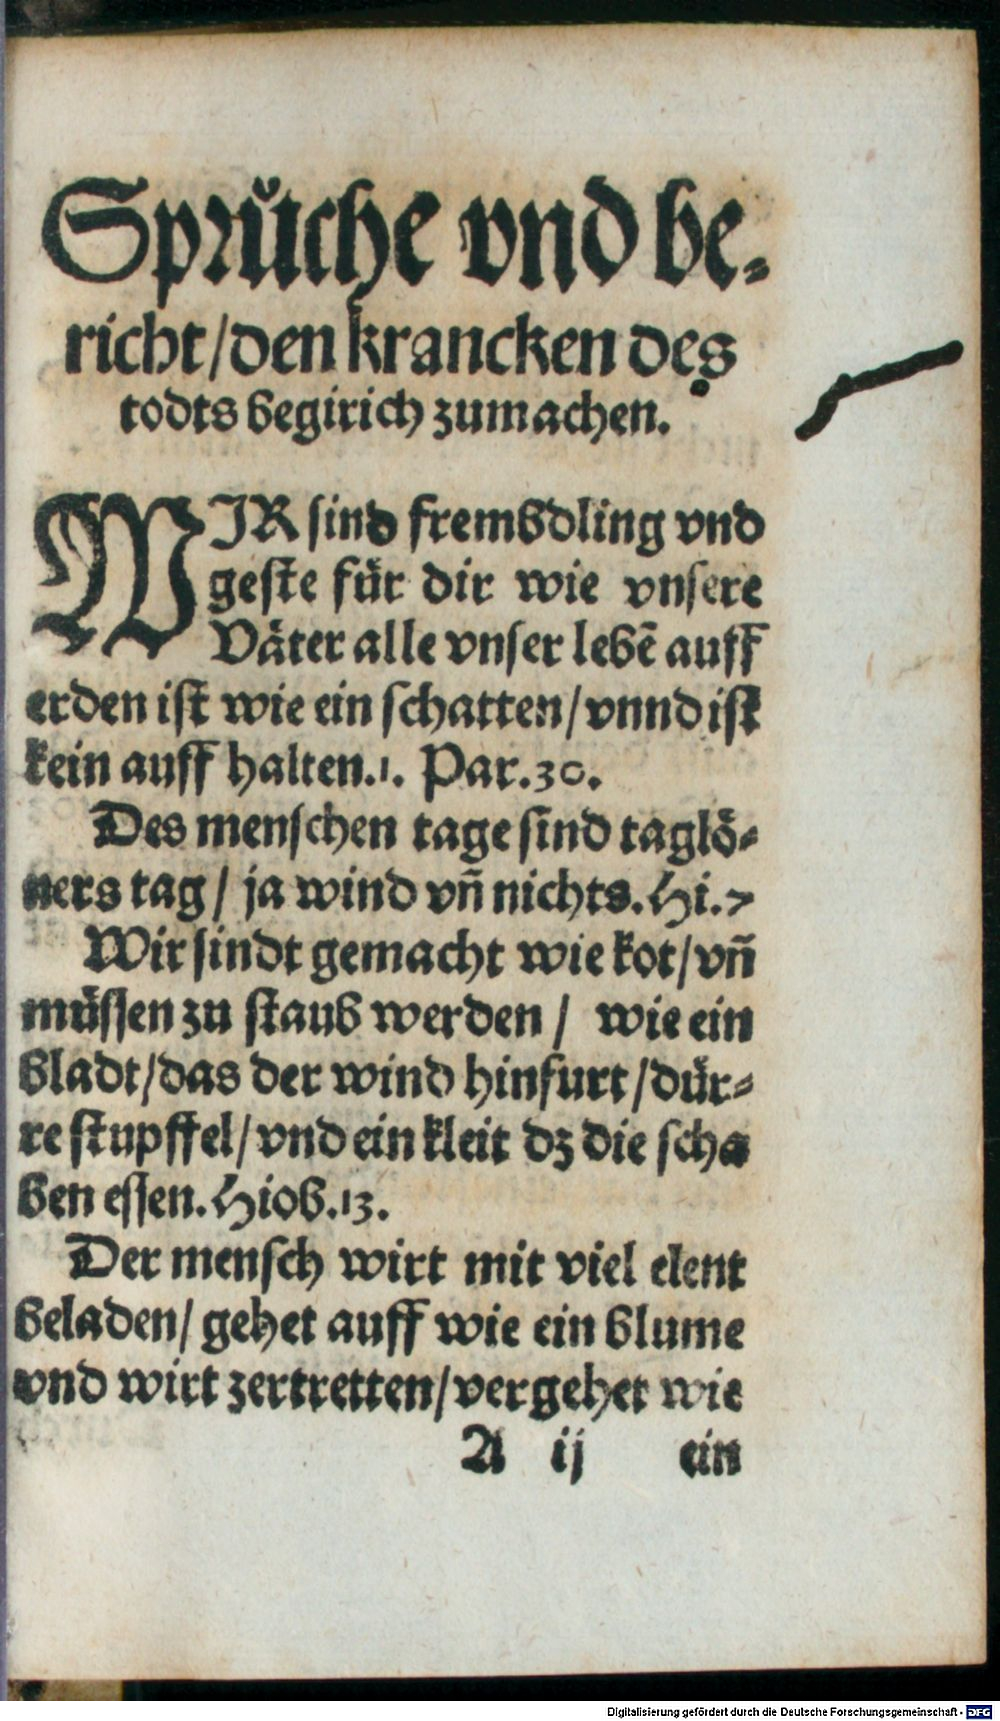 Sprüche vnd be-
richt/den krancken des
todts begirich zumachen.
WIR sind frembdling vnd
geste für dir wie vnsere
Väter alle vnser lebē auff
erden ist wie ein schatten/vnnd ist
kein auff halten.1. Par.30.
Des menschen tage sind taglö-
ners tag/ ja wind vn̄ nichts.Hi.7
Wir sindt gemacht wie kot/vn̄
müssen zu staub werden/ wie ein
bladt/das der wind hinfurt/dür-
re stupffel/vnd ein kleit dz die scha
ben essen.Hiob.13.
Der mensch wirt mit viel elent
beladen/ gehet auff wie ein blume
vnd wirt zertretten/vergehet wie
A ij ein
Digitalisierung gefördert durch die Deutsche Forschungsgemeinschaft - DFG